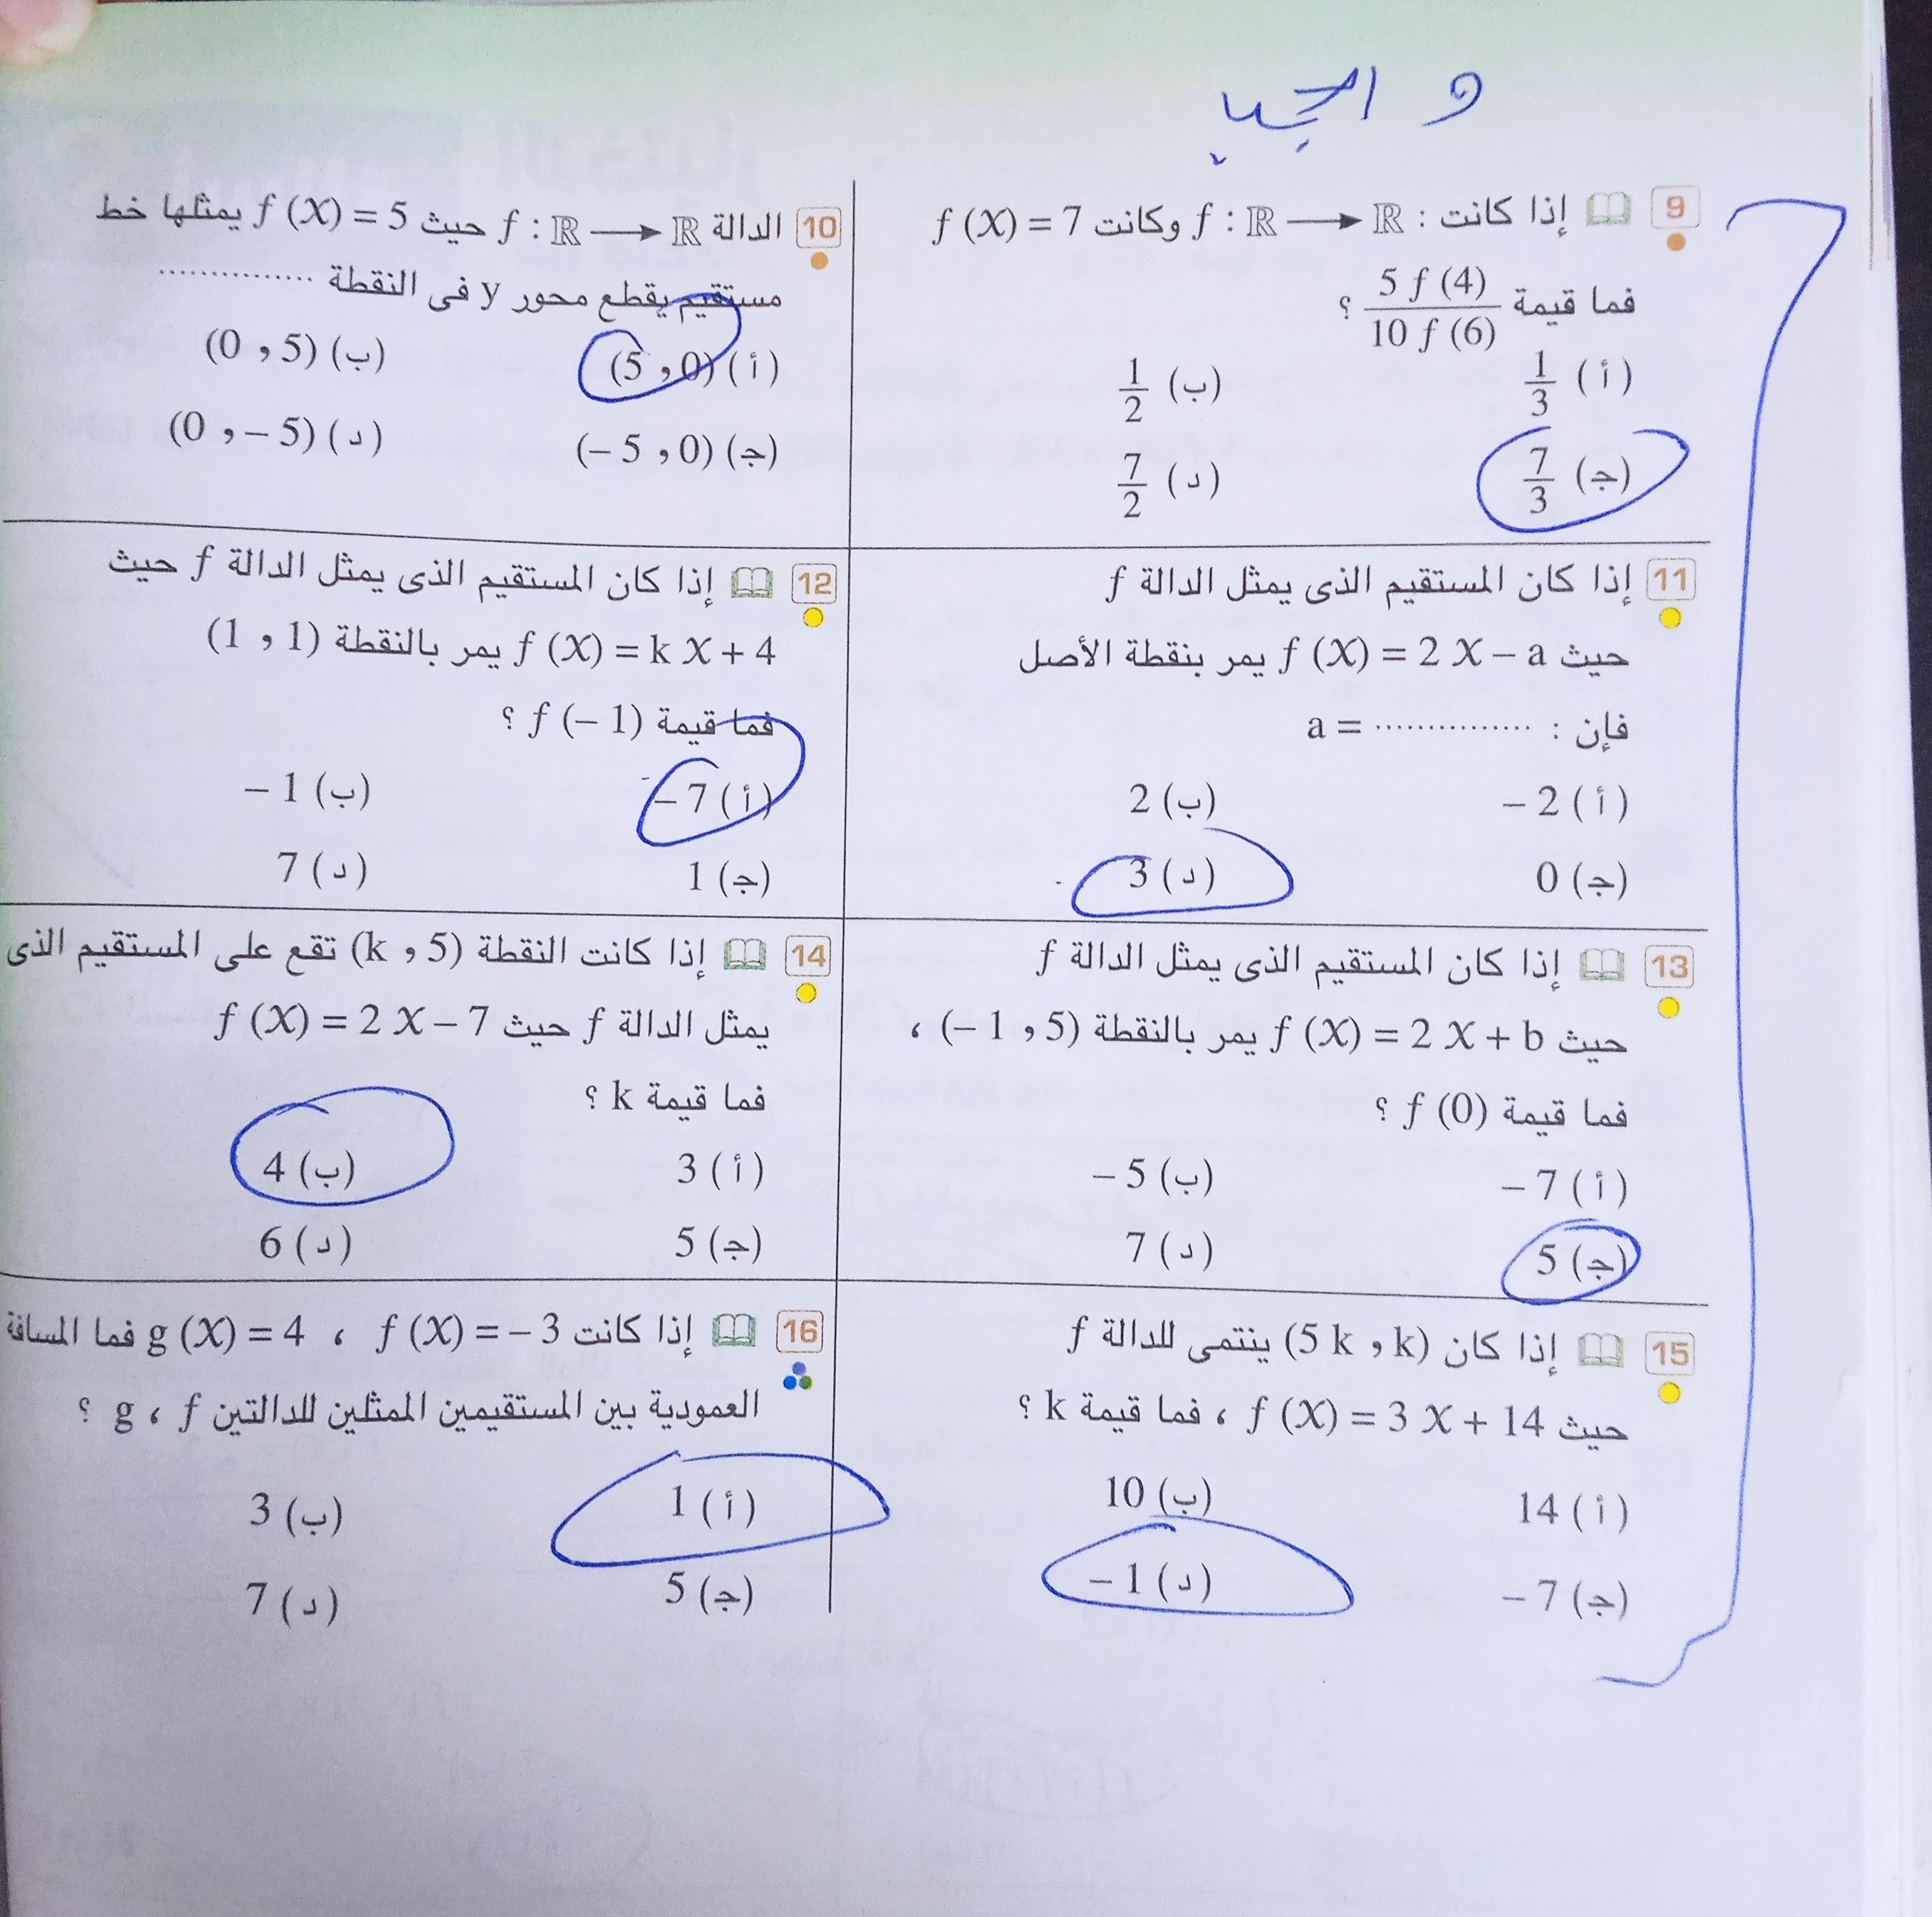 واجب
9 إذا كانت : f : ℝ ⟶ ℝ وكانت f (X) = 7
فما قيمة 5 f (4) / 10 f (6) ؟
(أ) 1/3 (ب) 1/2
(جـ) 7/3 (د) 7/2
10 الدالة f : ℝ ⟶ ℝ حيث f (X) = 5 يمثلها خط
مستقيم يقطع محور y فى النقطة ...............
(أ) (5 , 0) (ب) (0 , 5)
(جـ) (– 5 , 0) (د) (0 , – 5)
11 إذا كان المستقيم الذى يمثل الدالة f
حيث f (X) = 2 X – a يمر بنقطة الأصل
فإن : a = ...............
(أ) – 2 (ب) 2
(جـ) 0 (د) 3
12 إذا كان المستقيم الذى يمثل الدالة f حيث
f (X) = k X + 4 يمر بالنقطة (1 , 1)
فما قيمة f (– 1) ؟
(أ) – 7 (ب) – 1
(جـ) 1 (د) 7
13 إذا كان المستقيم الذى يمثل الدالة f
حيث f (X) = 2 X + b يمر بالنقطة (– 1 , 5) ،
فما قيمة f (0) ؟
(أ) – 7 (ب) – 5
(جـ) 5 (د) 7
14 إذا كانت النقطة (k , 5) تقع على المستقيم الذى
يمثل الدالة f حيث f (X) = 2 X – 7
فما قيمة k ؟
(أ) 3 (ب) 4
(جـ) 5 (د) 6
15 إذا كان (5 k , k) ينتمى للدالة f
حيث f (X) = 3 X + 14 ، فما قيمة k ؟
(أ) 14 (ب) 10
(جـ) – 7 (د) – 1
16 إذا كانت f (X) = – 3 ، g (X) = 4 فما المسافة
العمودية بين المستقيمين الممثلين للدالتين f ، g ؟
(أ) 1 (ب) 3
(جـ) 5 (د) 7